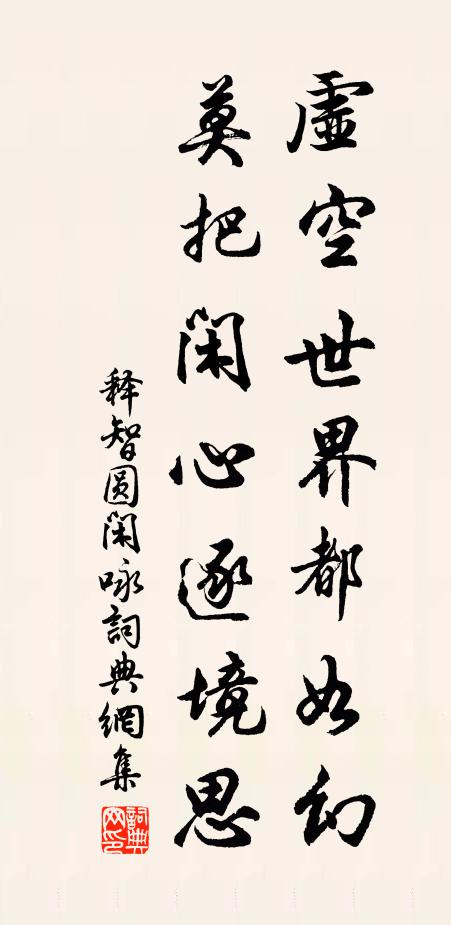 虛空世界都如幻
莫把閑心逐境思
释智圆閑咏詞典網集
詞典網印